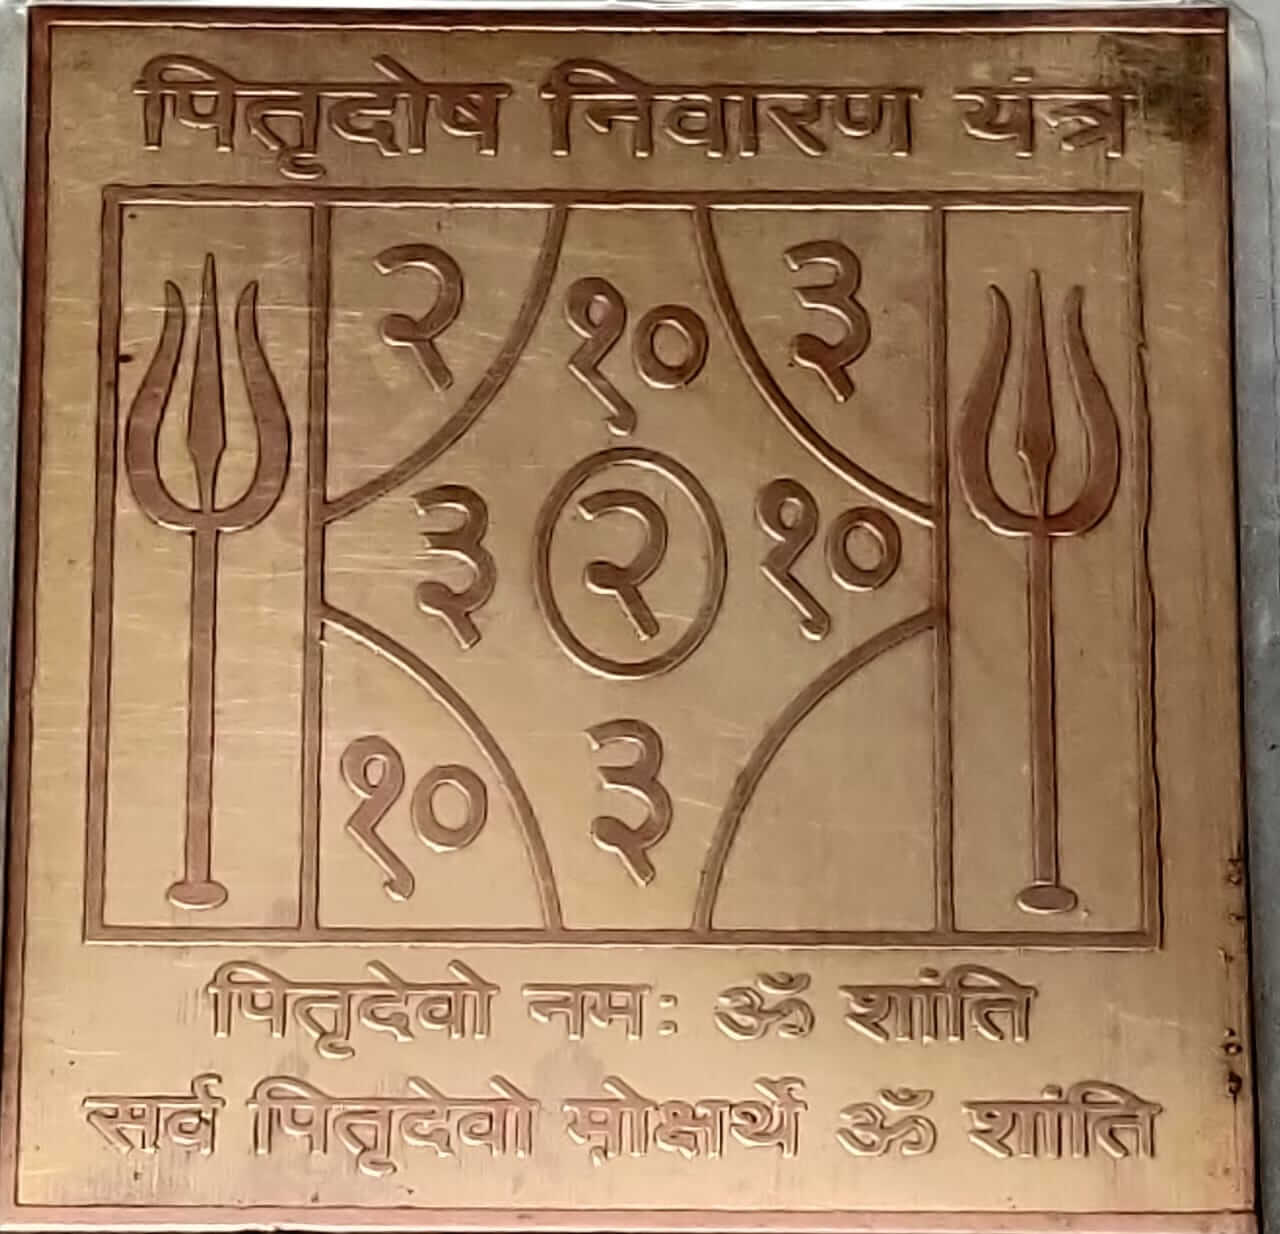 पितृदोष निवारण यंत्र
२ १० ३
३ २ १०
१० ३
पितृदेवो नमः ॐ शांति
सर्व पितृदेवो मोक्षर्थे ॐ शांति